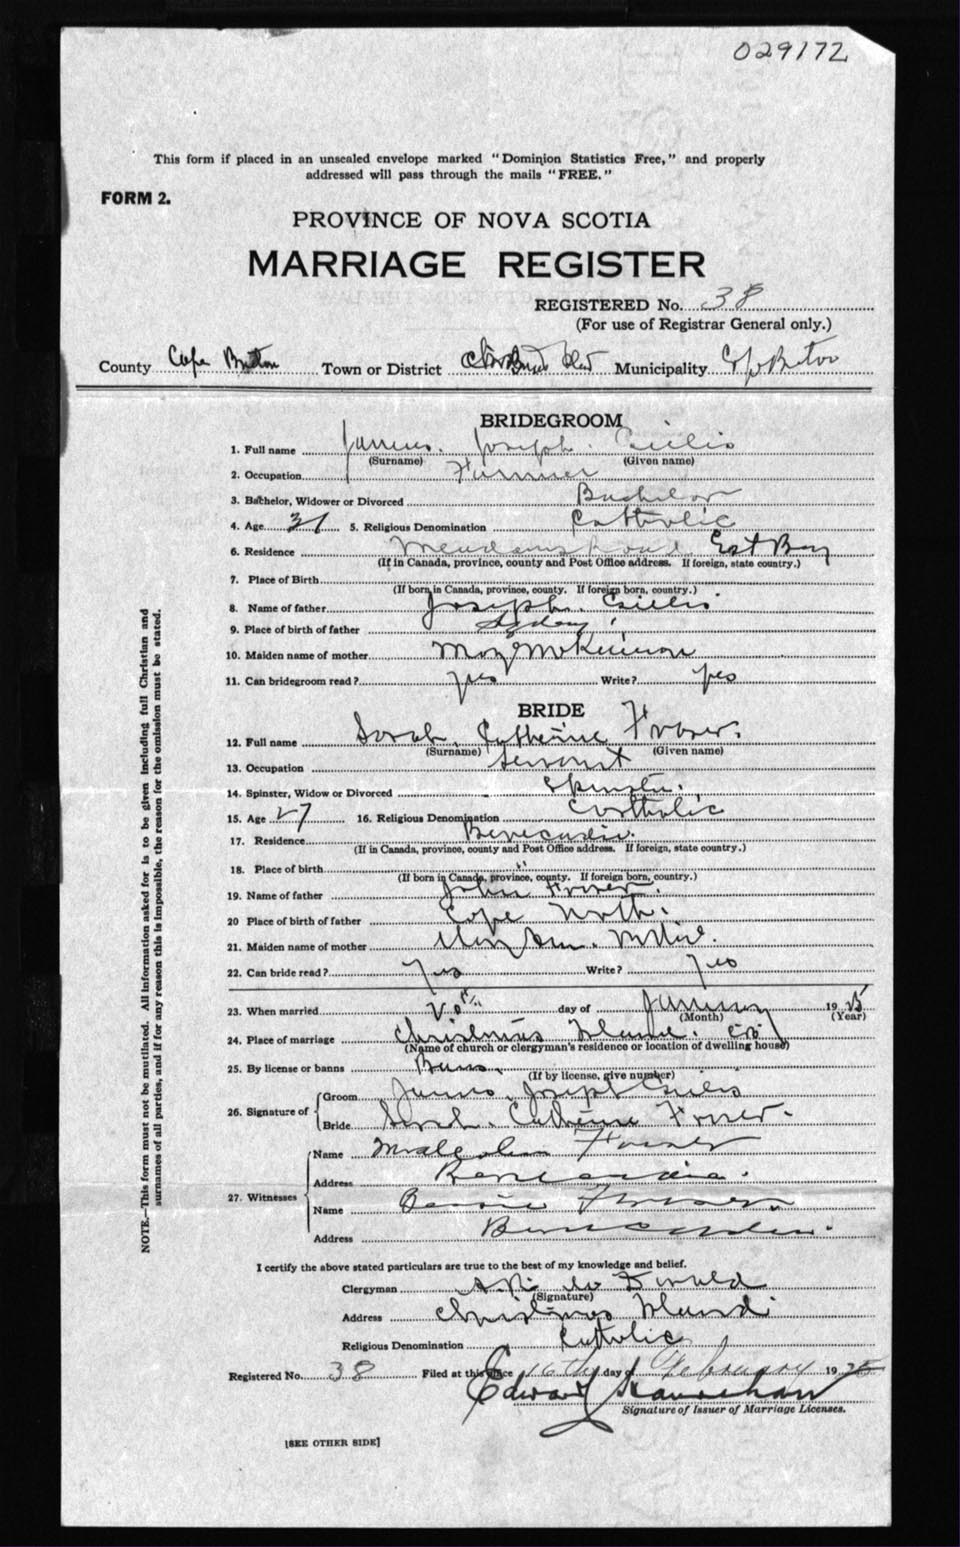 029172
This form if placed in an unsealed envelope marked "Dominion Statistics Free," and properly
addressed will pass through the mails "FREE."
FORM 2.
PROVINCE OF NOVA SCOTIA
MARRIAGE REGISTER
REGISTERED No. 38
(For use of Registrar General only.)
County Cape Breton Town or District Municipality C Breton
BRIDEGROOM
1. Full name James Joseph Gillis
(Surname) (Given name)
2. Occupation Farmer
3. Bachelor, Widower or Divorced Bachelor
4. Age 31 5. Religious Denomination Catholic
6. Residence Meadows Road East Bay
(If in Canada, province, county and Post Office address. If foreign, state country.)
7. Place of Birth
(If born in Canada, province, county. If foreign born, country.)
8. Name of father Joseph Gillis
9. Place of birth of father Sydney
10. Maiden name of mother Mary McKinnon
11. Can bridegroom read? yes Write? yes
BRIDE
12. Full name Sarah Catherine Fraser
(Surname) (Given name)
13. Occupation Servant
14. Spinster, Widow or Divorced Spinster
15. Age 27 16. Religious Denomination Catholic
17. Residence Benacadie
(If in Canada, province, county and Post Office address. If foreign, state country.)
18. Place of birth
(If born in Canada, province, county. If foreign born, country.)
19. Name of father John Fraser
20 Place of birth of father Cape North
21. Maiden name of mother Mary Ann McNeil
22. Can bride read? Yes Write? Yes
23. When married 20th day of January 1925
(Month) (Year)
24. Place of marriage Christmas Island CB
(Name of church or clergyman's residence or location of dwelling house)
25. By license or banns Banns
(If by license, give number)
26. Signature of Groom James Joseph Gillis
Bride Sarah Catherine Fraser
27. Witnesses Name Malcolm Fraser
Address Benacadie
Name Fraser
Address Benacadie
I certify the above stated particulars are true to the best of my knowledge and belief.
Clergyman McDonald
(Signature)
Address Christmas Island
Religious Denomination Catholic
Registered No. 38 Filed at this office 16th day of February 1925
Edward
Signature of Issuer of Marriage Licenses.
[SEE OTHER SIDE]
NOTE.—This form must not be mutilated. All information asked for is to be given including full Christian and
surnames of all parties, and if for any reason this is impossible, the reason for the omission must be stated.